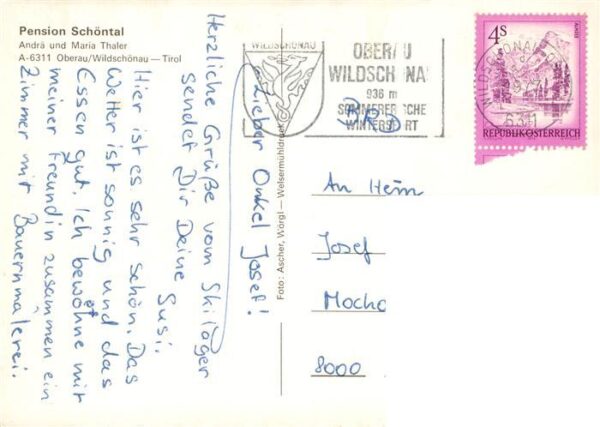 Pension Schöntal
Andrä und Maria Thaler
A-6311 Oberau/Wildschönau — Tirol
Lieber Onkel Josef!
Herzliche Grüße vom Skilager
sendet Dir Deine Susi.
Hier ist es sehr schön. Das
Wetter ist sonnig und das
Essen gut. Ich bewohne mit
meiner Freundin zusammen ein
Zimmer mit Bauernmalerei.
Foto: Ascher, Wörgl — Welsermühldruck
WILDSCHÖNAU
OBERAU
WILDSCHÖNAU
936 m
SOMMERFRISCHE
WINTERSPORT
BRD
4S
REPUBLIK ÖSTERREICH
6311
An Herrn
Josef
Mocho
8000